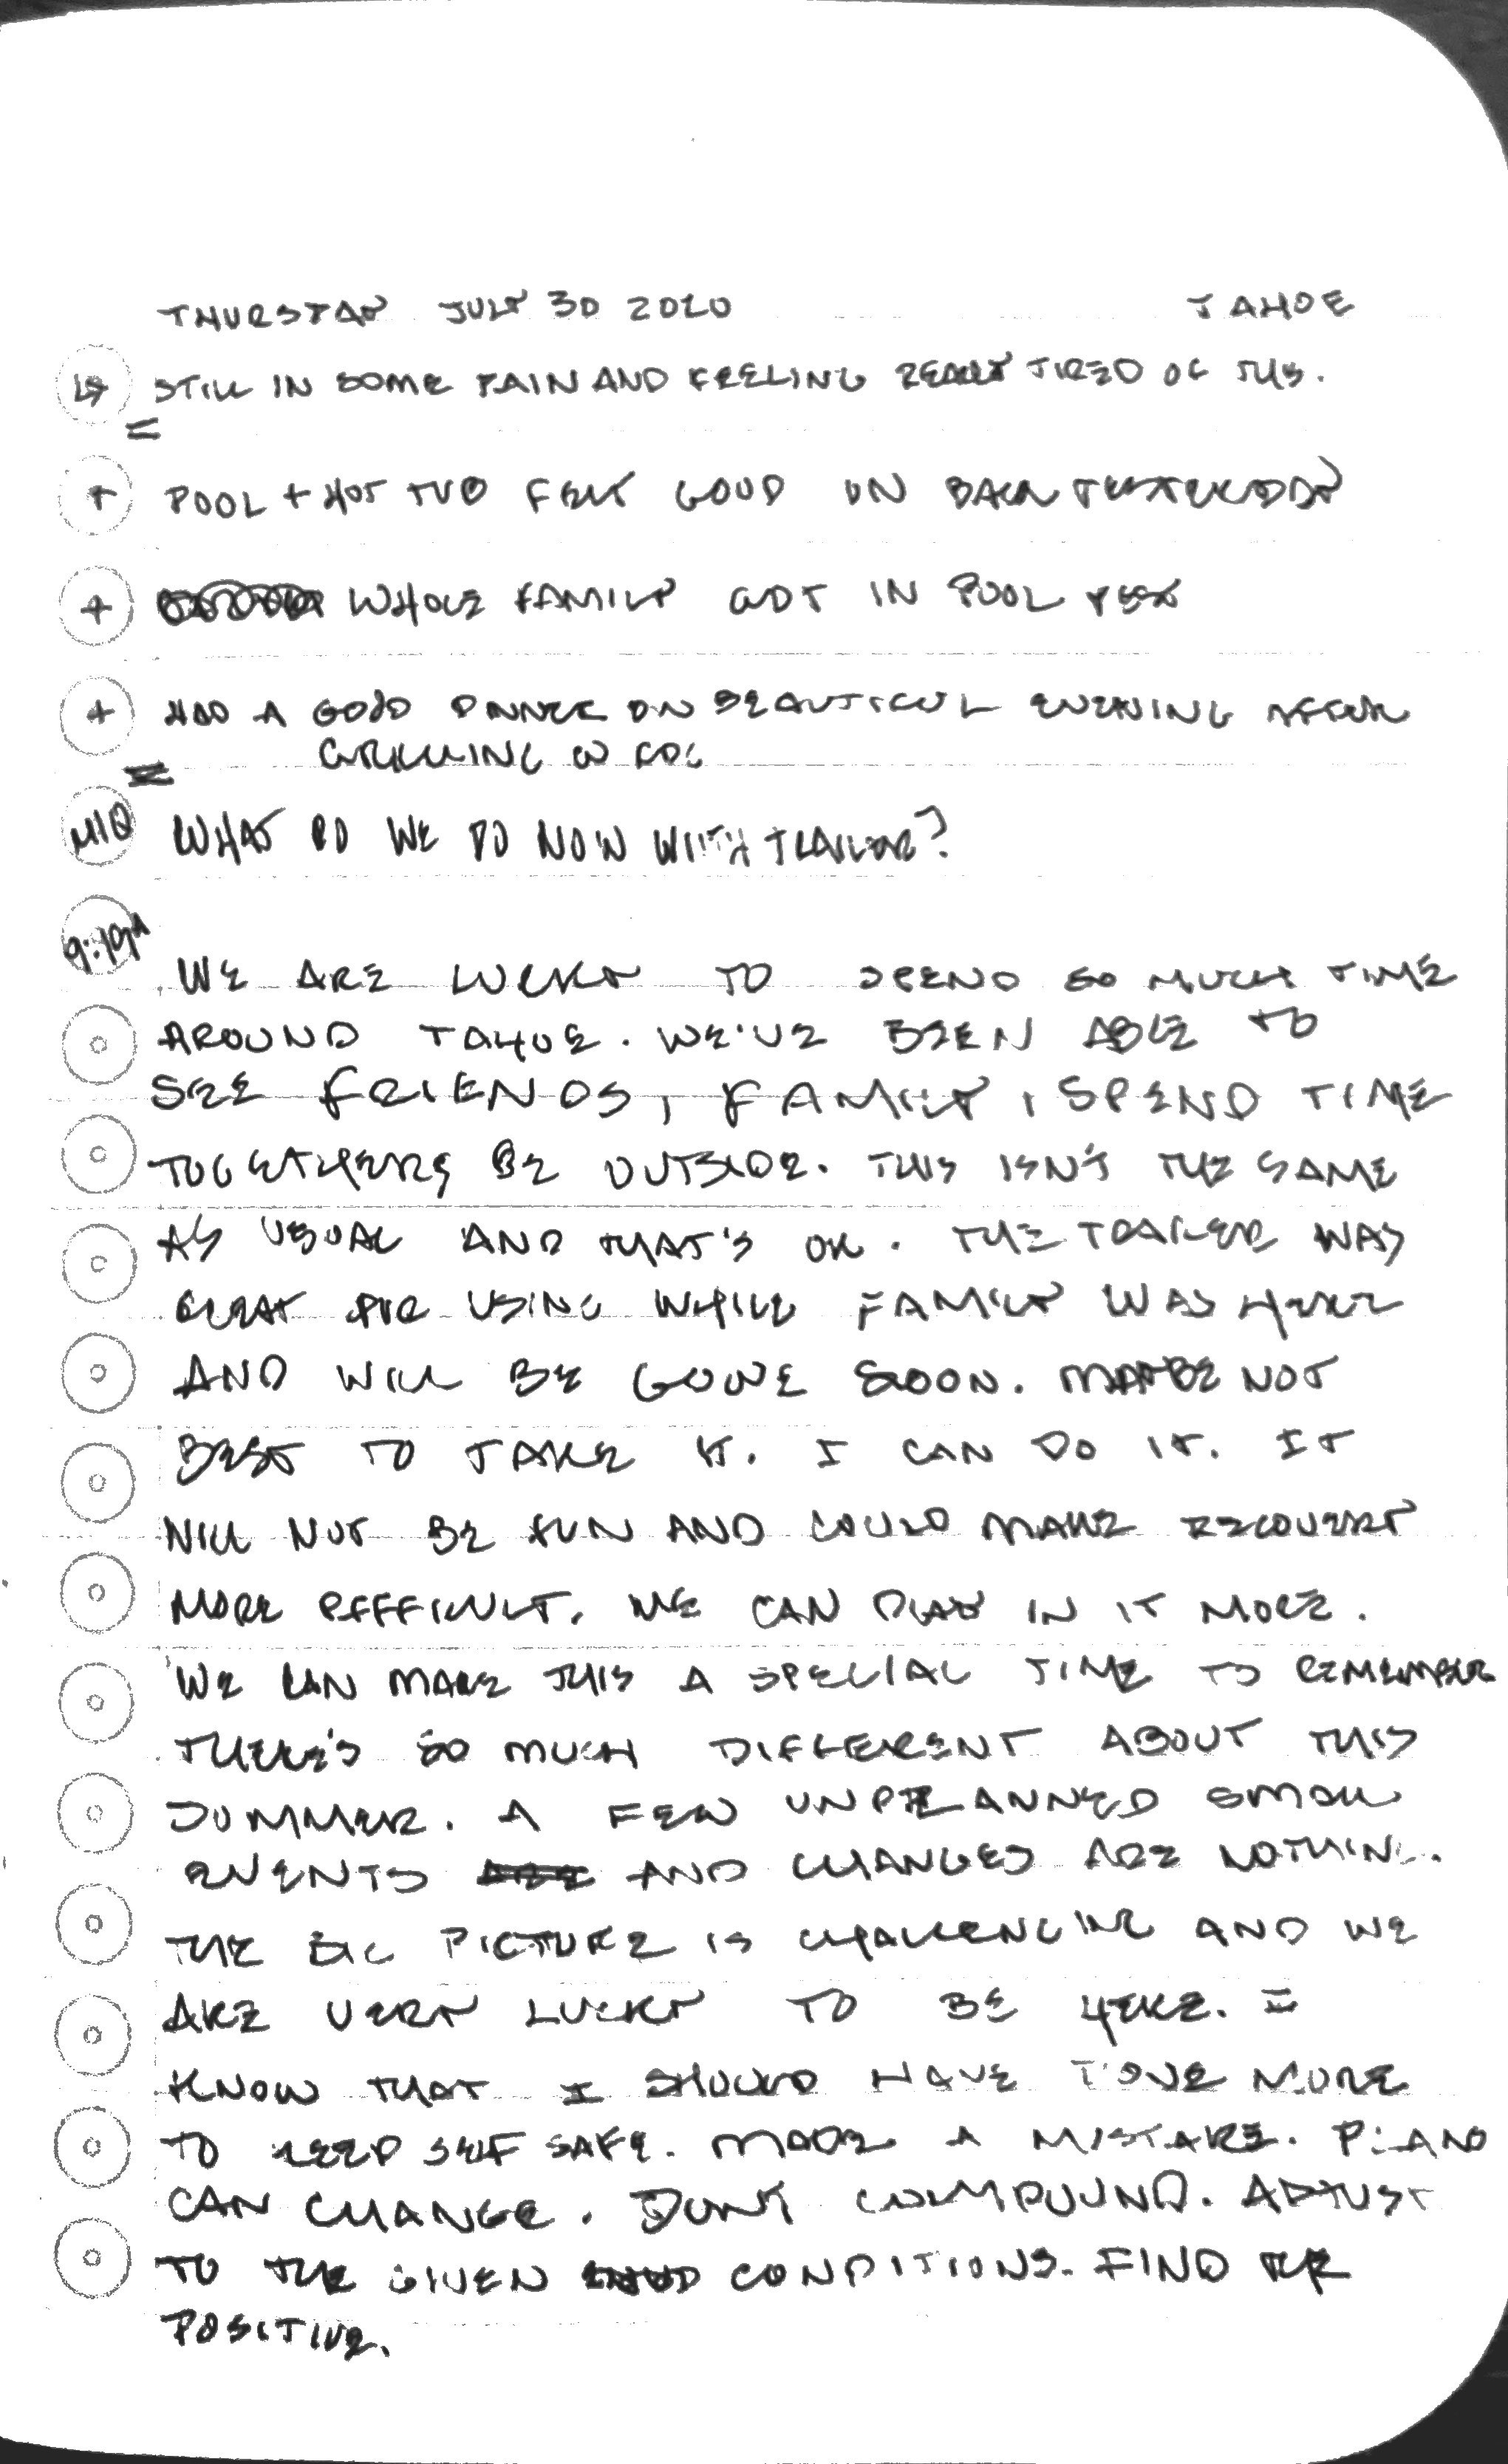 THURSDAY JULY 30 2020 TAHOE
STILL IN SOME PAIN AND FEELING REALLY TIRED OF THIS.
=
+ POOL + HOT TUB FELT GOOD ON BACK YESTERDAY
+ WHOLE FAMILY GOT IN POOL
+ HAD A GOOD DINNER ON BEAUTIFUL EVENING AFTER
GRILLING W
=
MIQ WHAT DO WE DO NOW WITH TRAILER?
9:19A
WE ARE LUCKY TO SPEND SO MUCH TIME
AROUND TAHOE. WE'VE BEEN ABLE TO
SEE FRIENDS, FAMILY, SPEND TIME
TOGETHER, BE OUTSIDE. THIS ISN'T THE SAME
AS USUAL AND THAT'S OK. THE TRAILER WAS
GREAT FOR USING WHILE FAMILY WAS HERE
AND WILL BE GONE SOON. MAYBE NOT
BEST TO TAKE IT. I CAN DO IT. IT
WILL NOT BE FUN AND COULD MAKE RECOVERY
MORE DIFFICULT. WE CAN PLAY IN IT MORE.
WE CAN MAKE THIS A SPECIAL TIME TO REMEMBER
THERE'S SO MUCH DIFFERENT ABOUT THIS
SUMMER. A FEW UNPLANNED SMALL
EVENTS AND CHANGES ARE NOTHING.
THE BIG PICTURE IS CHALLENGING AND WE
ARE VERY LUCKY TO BE HERE. I
KNOW THAT I SHOULD HAVE DONE MORE
TO KEEP SELF SAFE. MADE A MISTAKE. PLANS
CAN CHANGE. DON'T COMPOUND. ADJUST
TO THE GIVEN CONDITIONS. FIND THE
POSITIVE.